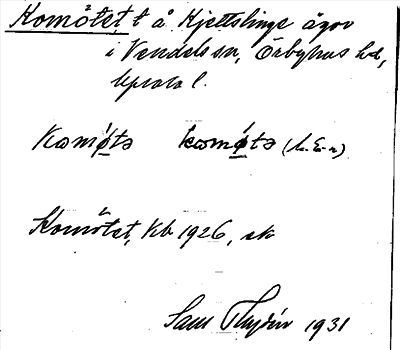 Komötet, t å Kjettslinge ägor
i Vendels sn, Örbyhus hd,
Upsala l.
Komø̄tə komø̄tə (L. E-n)
Komötet, kb 1926, ek
Sam Thydén 1931